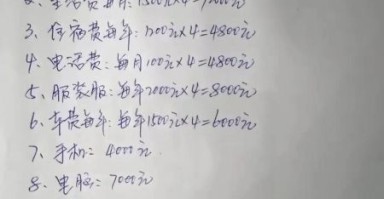 2、生活费每月:1500元×4=7
3、住宿费每年:1200元×4=4800元
4、电话费:每月100元×4=4800元
5、服装服:每年2000元×4=8000元
6、车费每年:每年1500元×4=6000元
7、手机:4000元
8、电脑:7000元